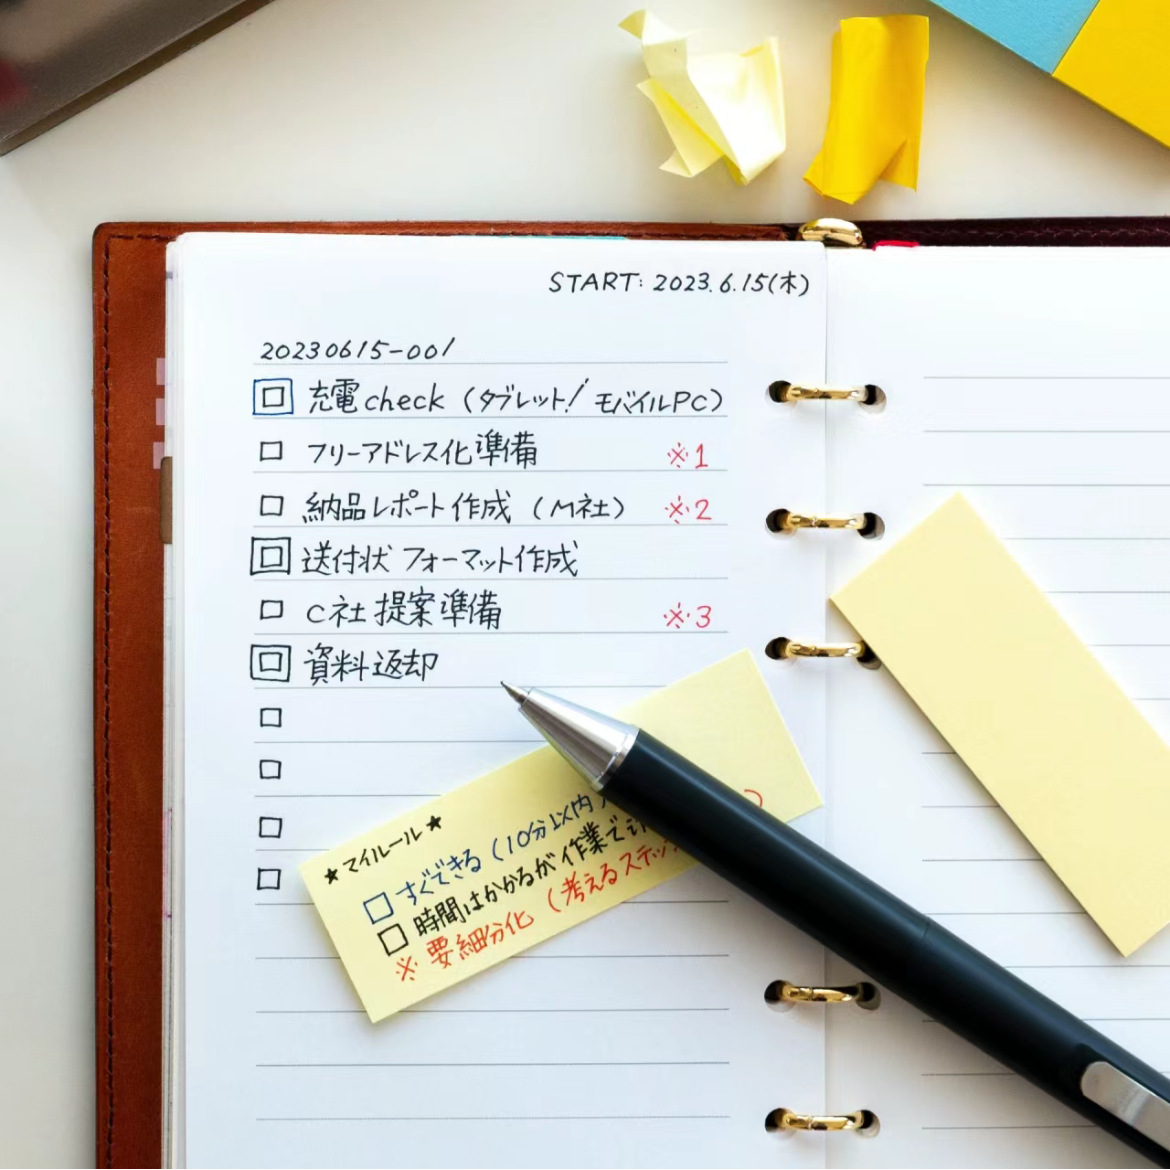 START: 2023.6.15(木)
20230615-001
□ 充電check (タブレット/モバイルPC)
□ フリーアドレス化準備 ※1
□ 納品レポート作成 (M社) ※2
□ 送付状 フォーマット作成
□ C社 提案準備 ※3
□ 資料返却
□
□
□
□
★マイルール★
□ すぐできる (10分以内
□ 時間はかかるが作業で
※ 要細分化 (考えるステッ